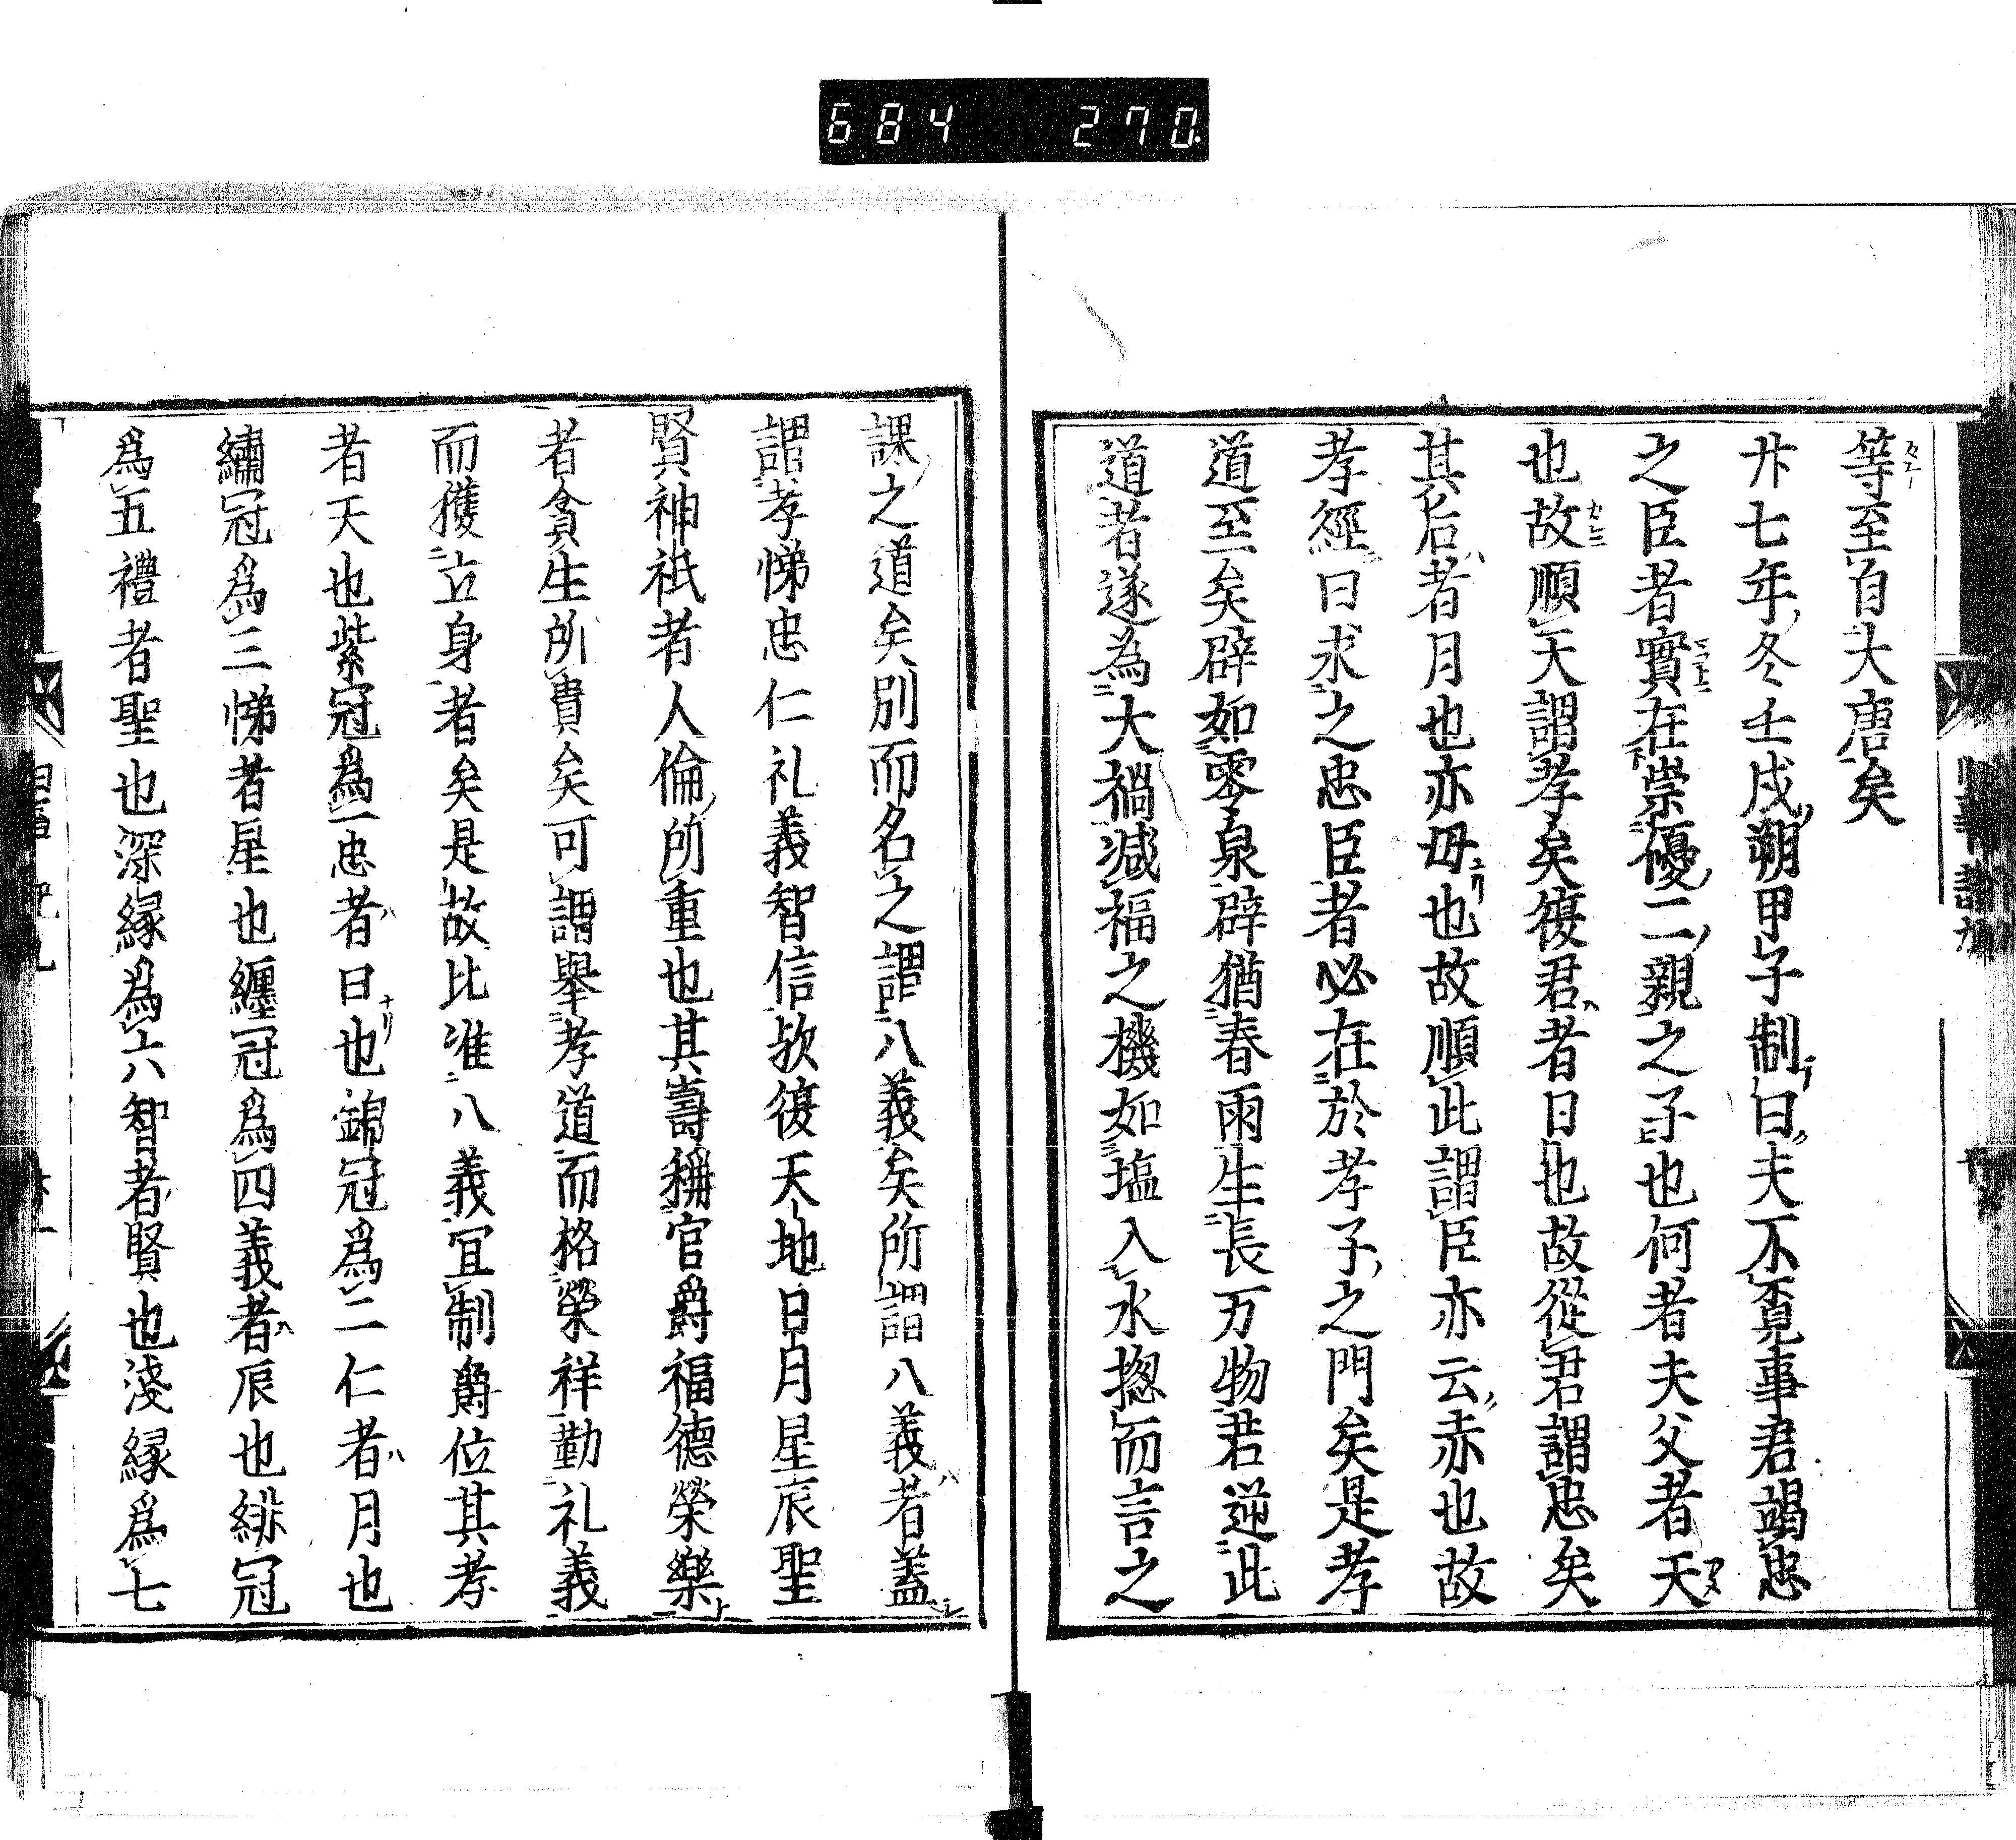 684 270
等至自大唐矣
廾七年冬壬戌朔甲子制曰夫不覔事君竭忠
之臣者實在崇優二親之子也何者夫父者天
也故順天謂孝矣復君者日也故從君謂忠矣
其后者月也亦毋也故順此謂臣亦云赤也故
孝經曰求之忠臣者必在於孝子之門矣是孝
道至矣辟如零泉辟猶春雨生長万物若逆此
道者遂為大禍滅福之機如塩入水揔而言之
課之道矣別而名之謂八義矣所謂八義者蓋
謂孝悌忠仁礼義智信欤復天地日月星辰聖
賢神祇者人倫所重也其壽稱官爵福德榮樂
者貪生所貴矣可謂舉孝道而格榮祥勤礼義
而獲立身者矣是故比准八義宜制爵位其孝
者天也紫冠爲一忠者日也錦冠爲二仁者月也
繡冠爲三悌者星也纏冠爲四義者辰也緋冠
爲五禮者聖也深縁爲六智者賢也淺縁爲七